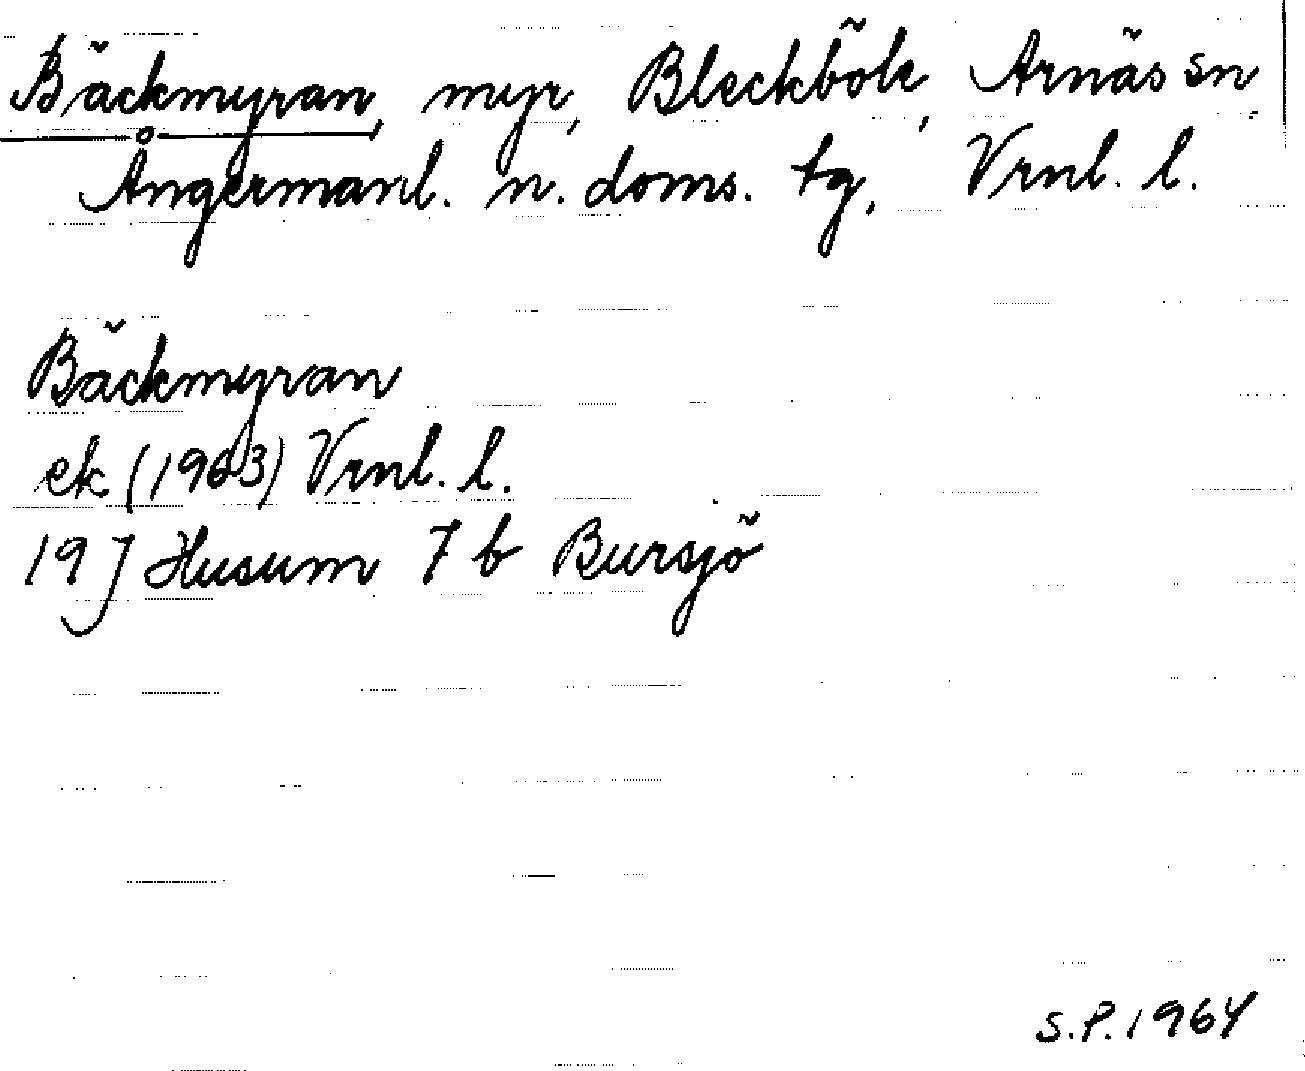 Bäckmyran, myr, Bleckbölе, Arnäs sn,
Ångermanl. n. doms. tg, Vrnl. l.
Bäckmyran
ek (1963) Vrnl. l.
19 J Husum 7 b Bursjö
S.P. 1964